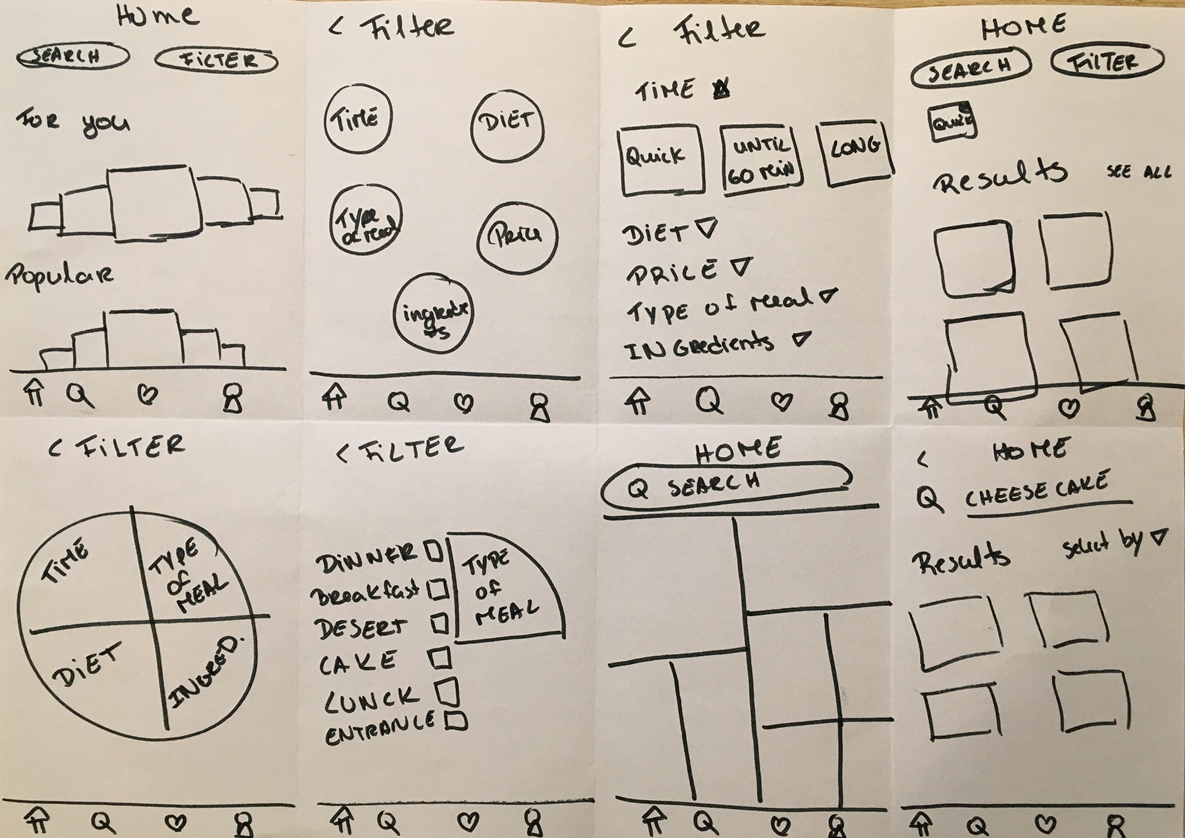 Home
SEARCH FILTER
For you
Popular
< Filter
TIME DIET
Type of meal
Price
ingredients
< Filter
TIME
Quick UNTIL 60 min LONG
DIET
PRICE
TYPE of meal
INGredients
HOME
SEARCH FILTER
Quick
Results SEE ALL
< FILTER
TIME TYPE OF MEAL
DIET INGRED.
< FILTER
DINNER
Breakfast
DESERT
CAKE
LUNCK
ENTRANCE
TYPE OF MEAL
HOME
SEARCH
< HOME
CHEESE CAKE
Results select by